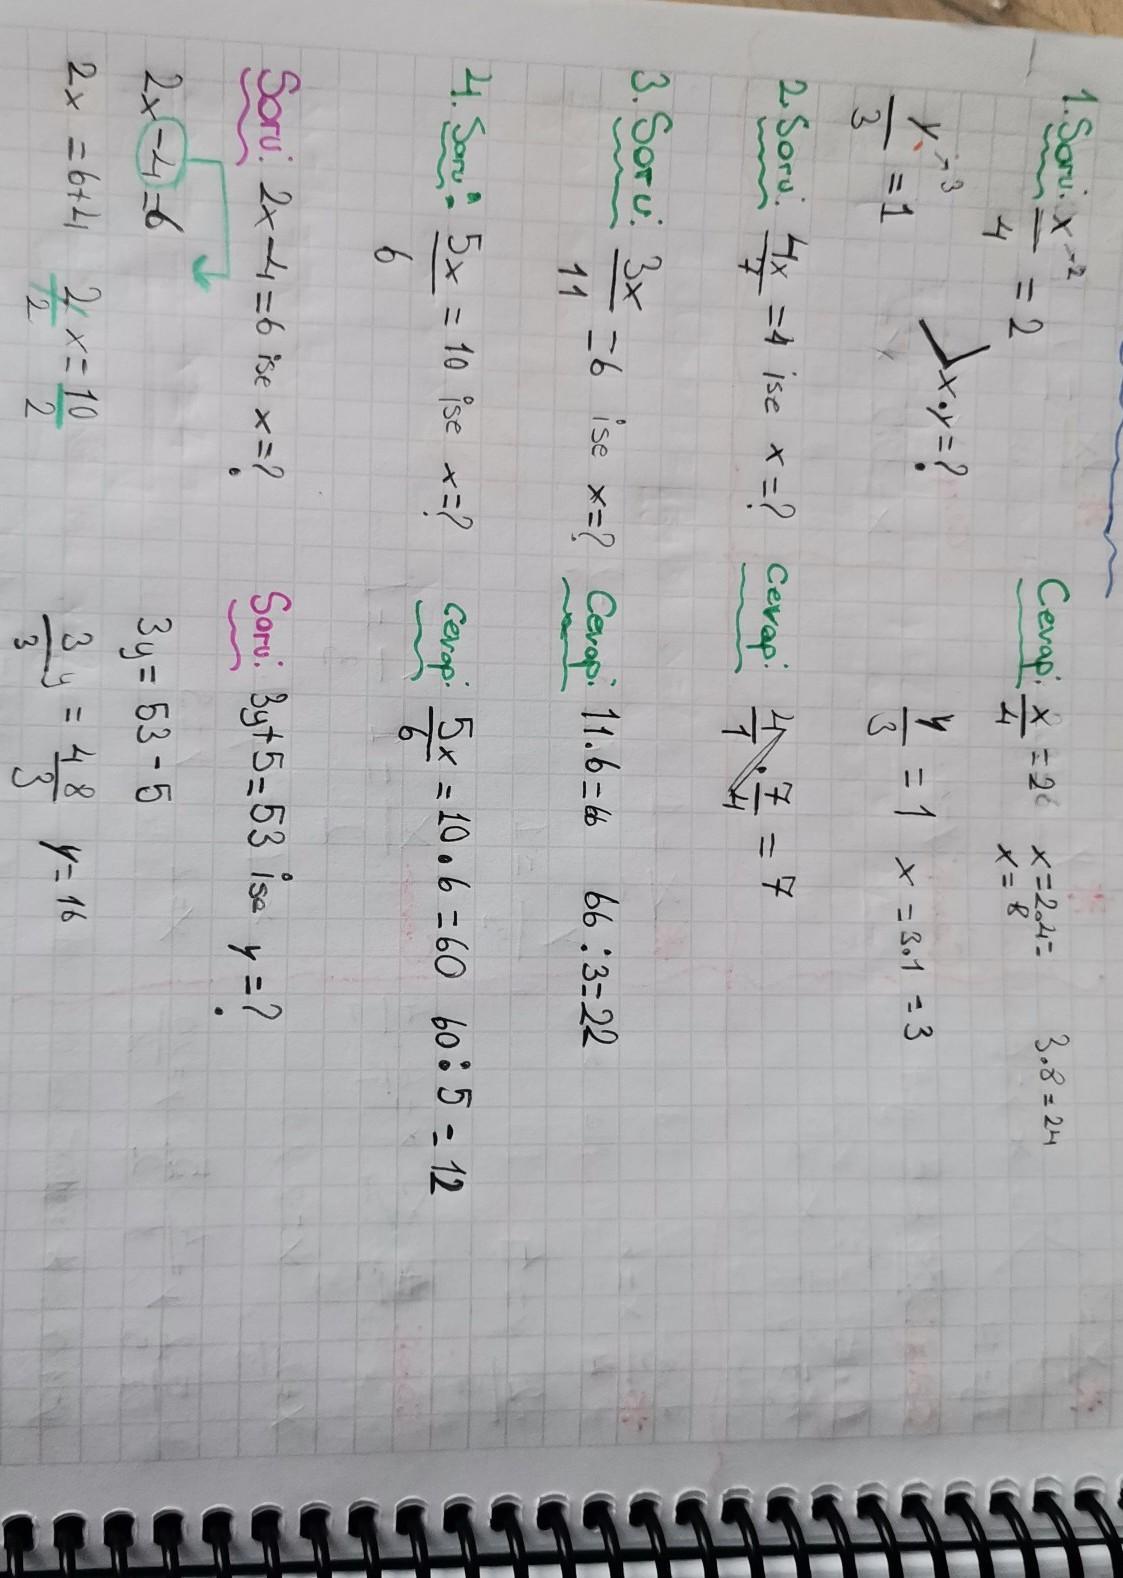 1. Soru: x/4 = 2 Cevap: x/4 = 2 x=2.4= 3.8=24
x=8
x.y=?
y/3 = 1 y/3 = 1 x=3.1=3
2. Soru: 4x/7 = 4 ise x=? Cevap: 4/1 . 7/4 = 7
3. Soru: 3x/11 = 6 ise x=? Cevap: 11.6=66 66:3=22
4. Soru: 5x/6 = 10 ise x=? Cevap: 5x/6 = 10.6=60 60:5=12
Soru: 2x-4=6 ise x=? Soru: 3y+5=53 ise y=?
2x-4=6 3y=53-5
2x=6+4 2x/2=10/2 3y/3=48/3 y=16